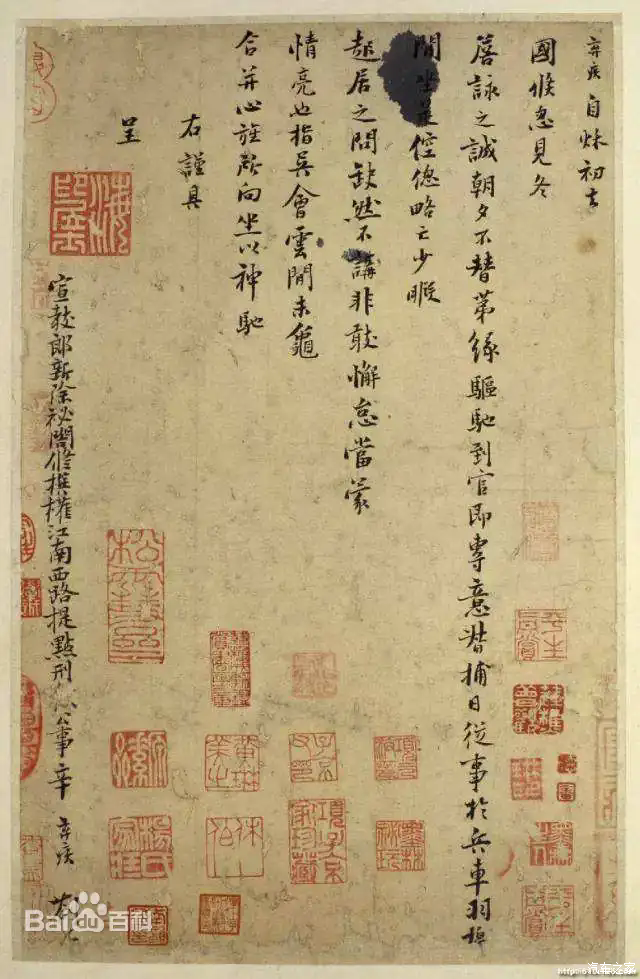 弃疾自秌初去
國倏忽見冬
詹詠之誠朝夕不替第緣驅馳到官即專意督捕日從事於兵車羽檄
間坐是倥傯略亡少暇
起居之問缺然不講非敢懈怠當蒙
情亮也指吳會雲間未龜
合并心旌所向坐以神馳
右謹具
呈
宣教郎新除祕閣修撰權江南西路提點刑獄公事辛弃疾
平生真賞
子京父印
項子京家珍藏
Bai百科
汽车之家